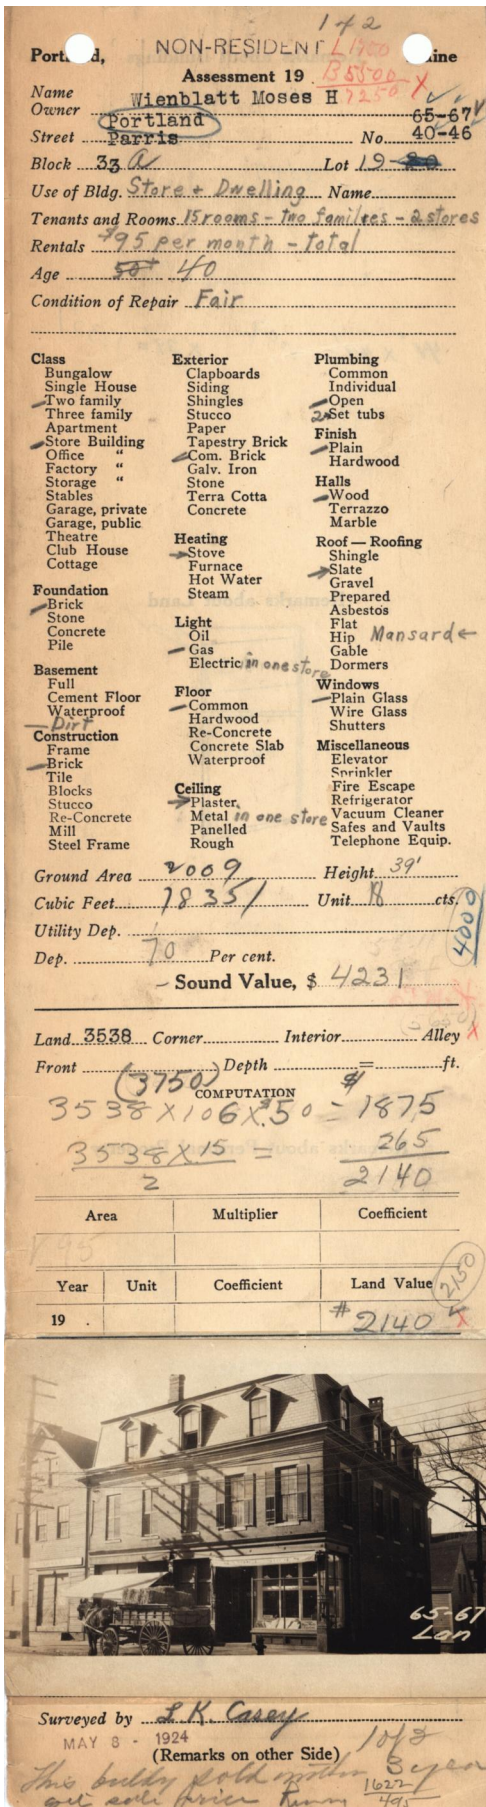 1 of 2
NON-RESIDENT L1700
Portland, Maine
Assessment 19 B5500
7250 X
Name Wienblatt Moses H
Owner
Portland 65-67
Street Parris No. 40-46
Block 33 A Lot 19-20
Use of Bldg. Store + Dwelling Name
Tenants and Rooms 15 rooms - two families - 2 stores
Rentals $95 per month - total
Age 50+ 40
Condition of Repair Fair
Class
Bungalow
Single House
Two family
Three family
Apartment
Store Building
Office "
Factory "
Storage "
Stables
Garage, private
Garage, public
Theatre
Club House
Cottage
Foundation
Brick
Stone
Concrete
Pile
Basement
Full
Cement Floor
Waterproof
Dirt
Construction
Frame
Brick
Tile
Blocks
Stucco
Re-Concrete
Mill
Steel Frame
Exterior
Clapboards
Siding
Shingles
Stucco
Paper
Tapestry Brick
Com. Brick
Galv. Iron
Stone
Terra Cotta
Concrete
Heating
Stove
Furnace
Hot Water
Steam
Light
Oil
Gas
Electric in one store
Floor
Common
Hardwood
Re-Concrete
Concrete Slab
Waterproof
Ceiling
Plaster
Metal in one store
Panelled
Rough
Plumbing
Common
Individual
Open
2 Set tubs
Finish
Plain
Hardwood
Halls
Wood
Terrazzo
Marble
Roof — Roofing
Shingle
Slate
Gravel
Prepared
Asbestos
Flat
Hip Mansard
Gable
Dormers
Windows
Plain Glass
Wire Glass
Shutters
Miscellaneous
Elevator
Sprinkler
Fire Escape
Refrigerator
Vacuum Cleaner
Safes and Vaults
Telephone Equip.
Ground Area 2009 Height 39'
Cubic Feet 78351 Unit 18 cts.
4000
Utility Dep.
Dep. 70 Per cent.
Sound Value, $ 4231
Land 3538 Corner Interior Alley X
Front Depth = ft.
(3750) COMPUTATION
3538 X 106 X .50 = $1875
3538 X 15 = 265
2 2140
Area Multiplier Coefficient
Year Unit Coefficient Land Value 2150
19 . 2140 X
65-67
Lan
Surveyed by L. K. Casey
MAY 8 - 1924
(Remarks on other Side) 1 of 2
This sold within 3 year
sale price 1622
495